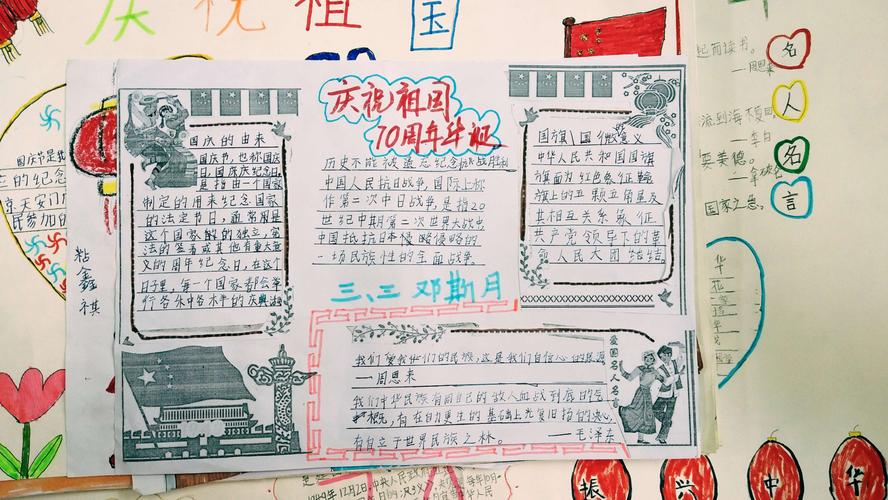 庆祝祖国
庆祝祖国
70周年华诞
国庆的由来
国庆节,也称国庆
日,国庆庆纪念日,
是指由一个国家
制定的用来纪念国家
的法定节日,通常是
这个国家的独立、宪
法的签署或其他有重大意
义的周年纪念日,在这个
日子里,每一个国家都会举
行各
历史不能被遗忘纪念抗战胜利
中国人民抗日战争,国际上称
作第二次中日战争,是指20
世纪中期第二次世界大战中,
中国抵抗日本侵略侵略的
一场民族性的全面战争。
三、三邓斯月
国旗、国徽意义
中华人民共和国国旗
旗面为红色象征革命
旗上的五颗五角星及
其相互关系象征
共产党领导下的革
命人民大团结
我们爱我们的民族,这是我们自信心的根源
—周恩来
我们中华民族有同自己的敌人血战到底的气
概,有在自力更生的基础上光复旧物的决心,
有自立于世界民族之林。
—毛泽东
爱国名人名言
粘鑫祺
国庆节是
的纪念
京天安门
民参加的
起而读书。
—周恩来
流到海不复回
—李白
莫美德。
—拿破仑
国家之急。
名
人
名
言
华
振
兴
中
华